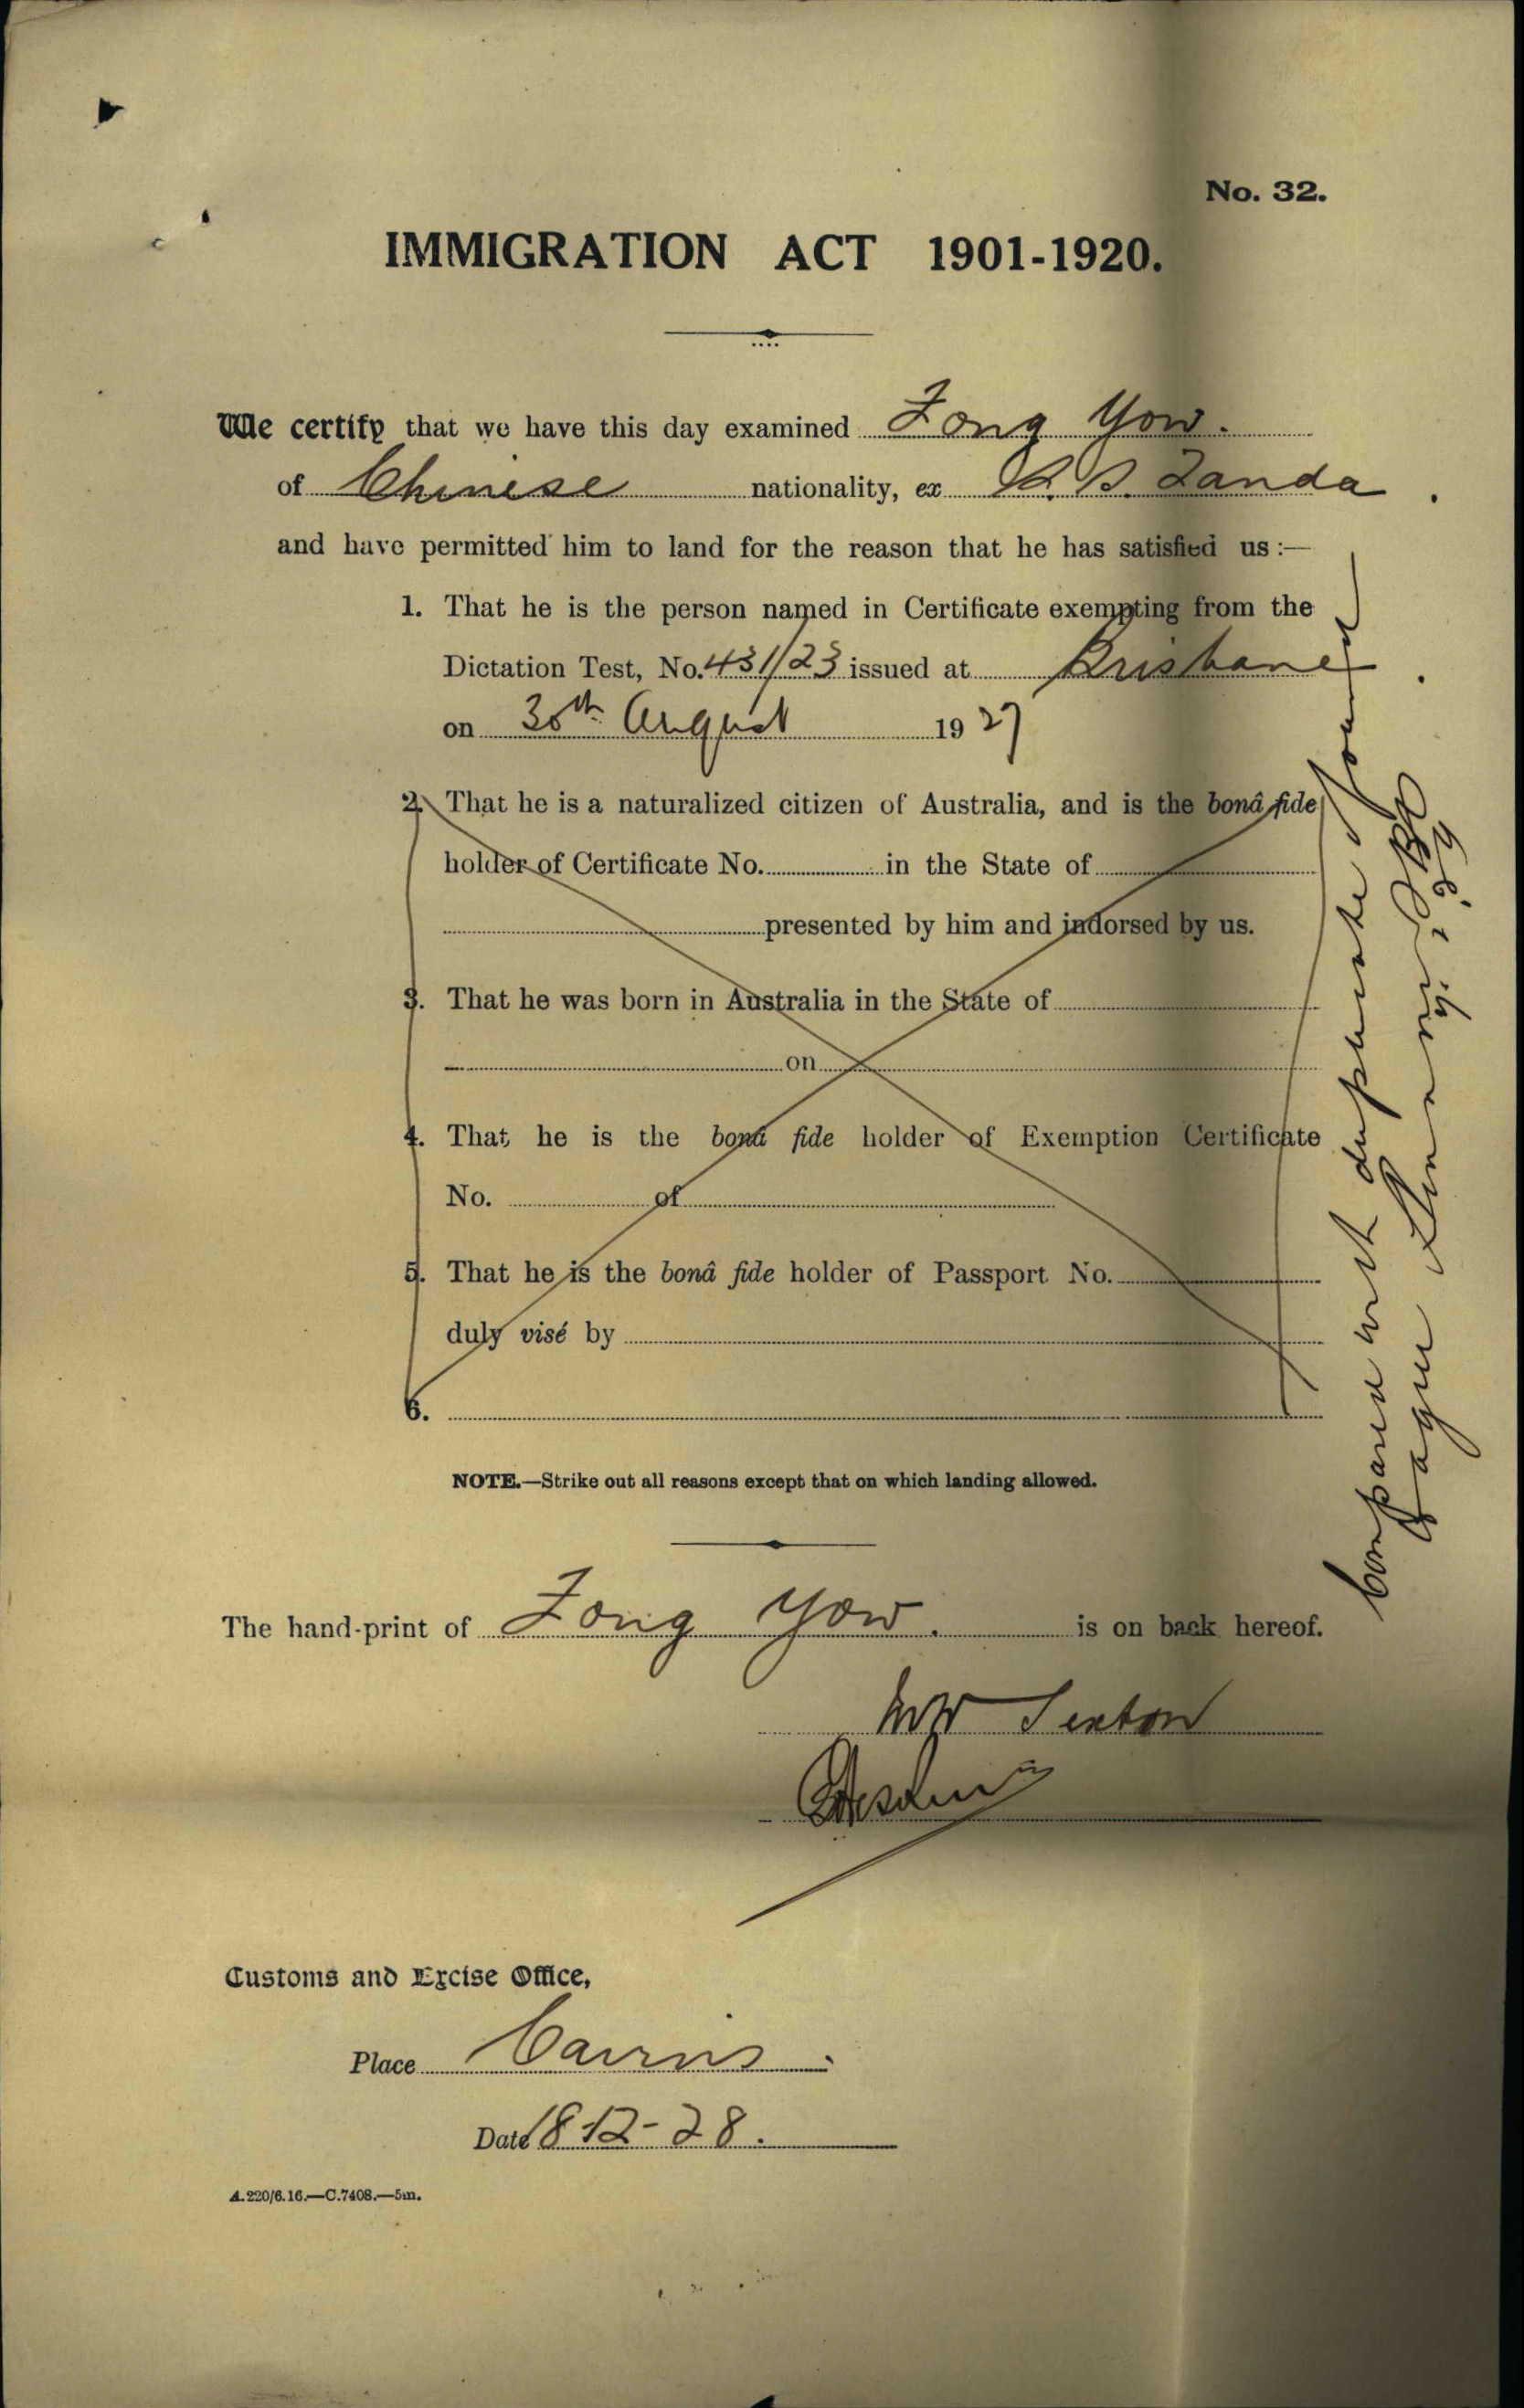 No. 32.
IMMIGRATION ACT 1901-1920.
We certify that we have this day examined Fong Yow.
of Chinese nationality, ex S.S. Tanda.
and have permitted him to land for the reason that he has satisfied us :—
1. That he is the person named in Certificate exempting from the
Dictation Test, No. 431/23 issued at Brisbane
on 30th August 1927
2. That he is a naturalized citizen of Australia, and is the bonâ fide
holder of Certificate No. in the State of
presented by him and indorsed by us.
3. That he was born in Australia in the State of
on
4. That he is the bonâ fide holder of Exemption Certificate
No. of
5. That he is the bonâ fide holder of Passport No.
duly visé by
6.
NOTE.—Strike out all reasons except that on which landing allowed.
The hand-print of Fong Yow. is on back hereof.
Sexton
Customs and Excise Office,
Place Cairns.
Date 18-12-28.
A.220/6.16.—C.7408.—5m.
Compared with duplicate & found
agree